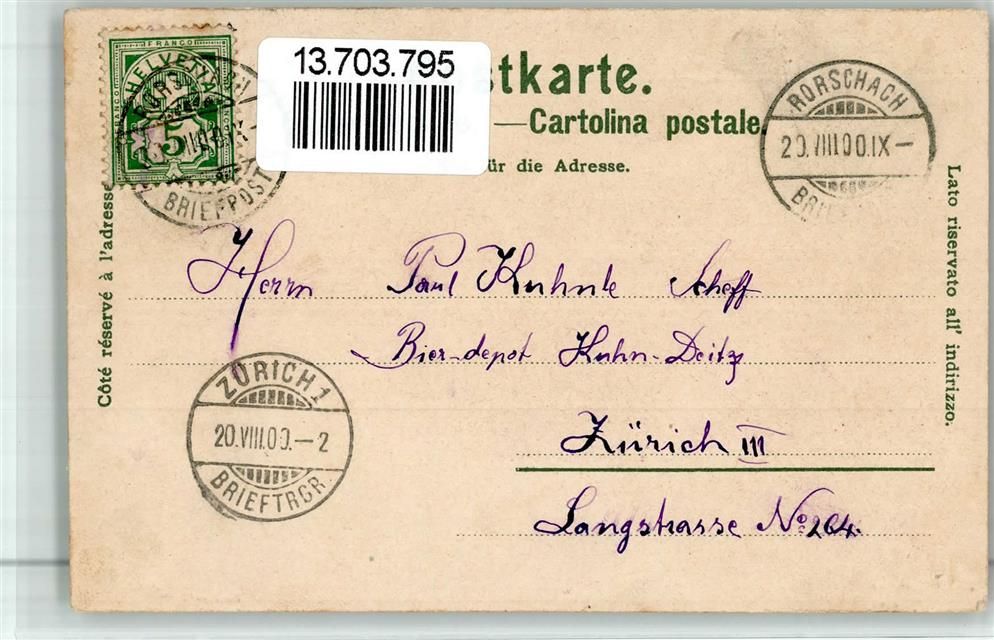 FRANCO
HELVETIA
FRANCO
5
BRIEFPOST
13.703.795
stkarte.
—Cartolina postale.
ür die Adresse.
RORSCHACH
20.VIII.00.IX—
Côté réservé à l'adresse
Lato riservato all' indirizzo.
Herrn Paul Kuhnle
Bier-depot Kuhn-Deitz
ZÜRICH 1
20.VIII.00.—2
BRIEFTRGR
Zürich III
Langstrasse No. 204.